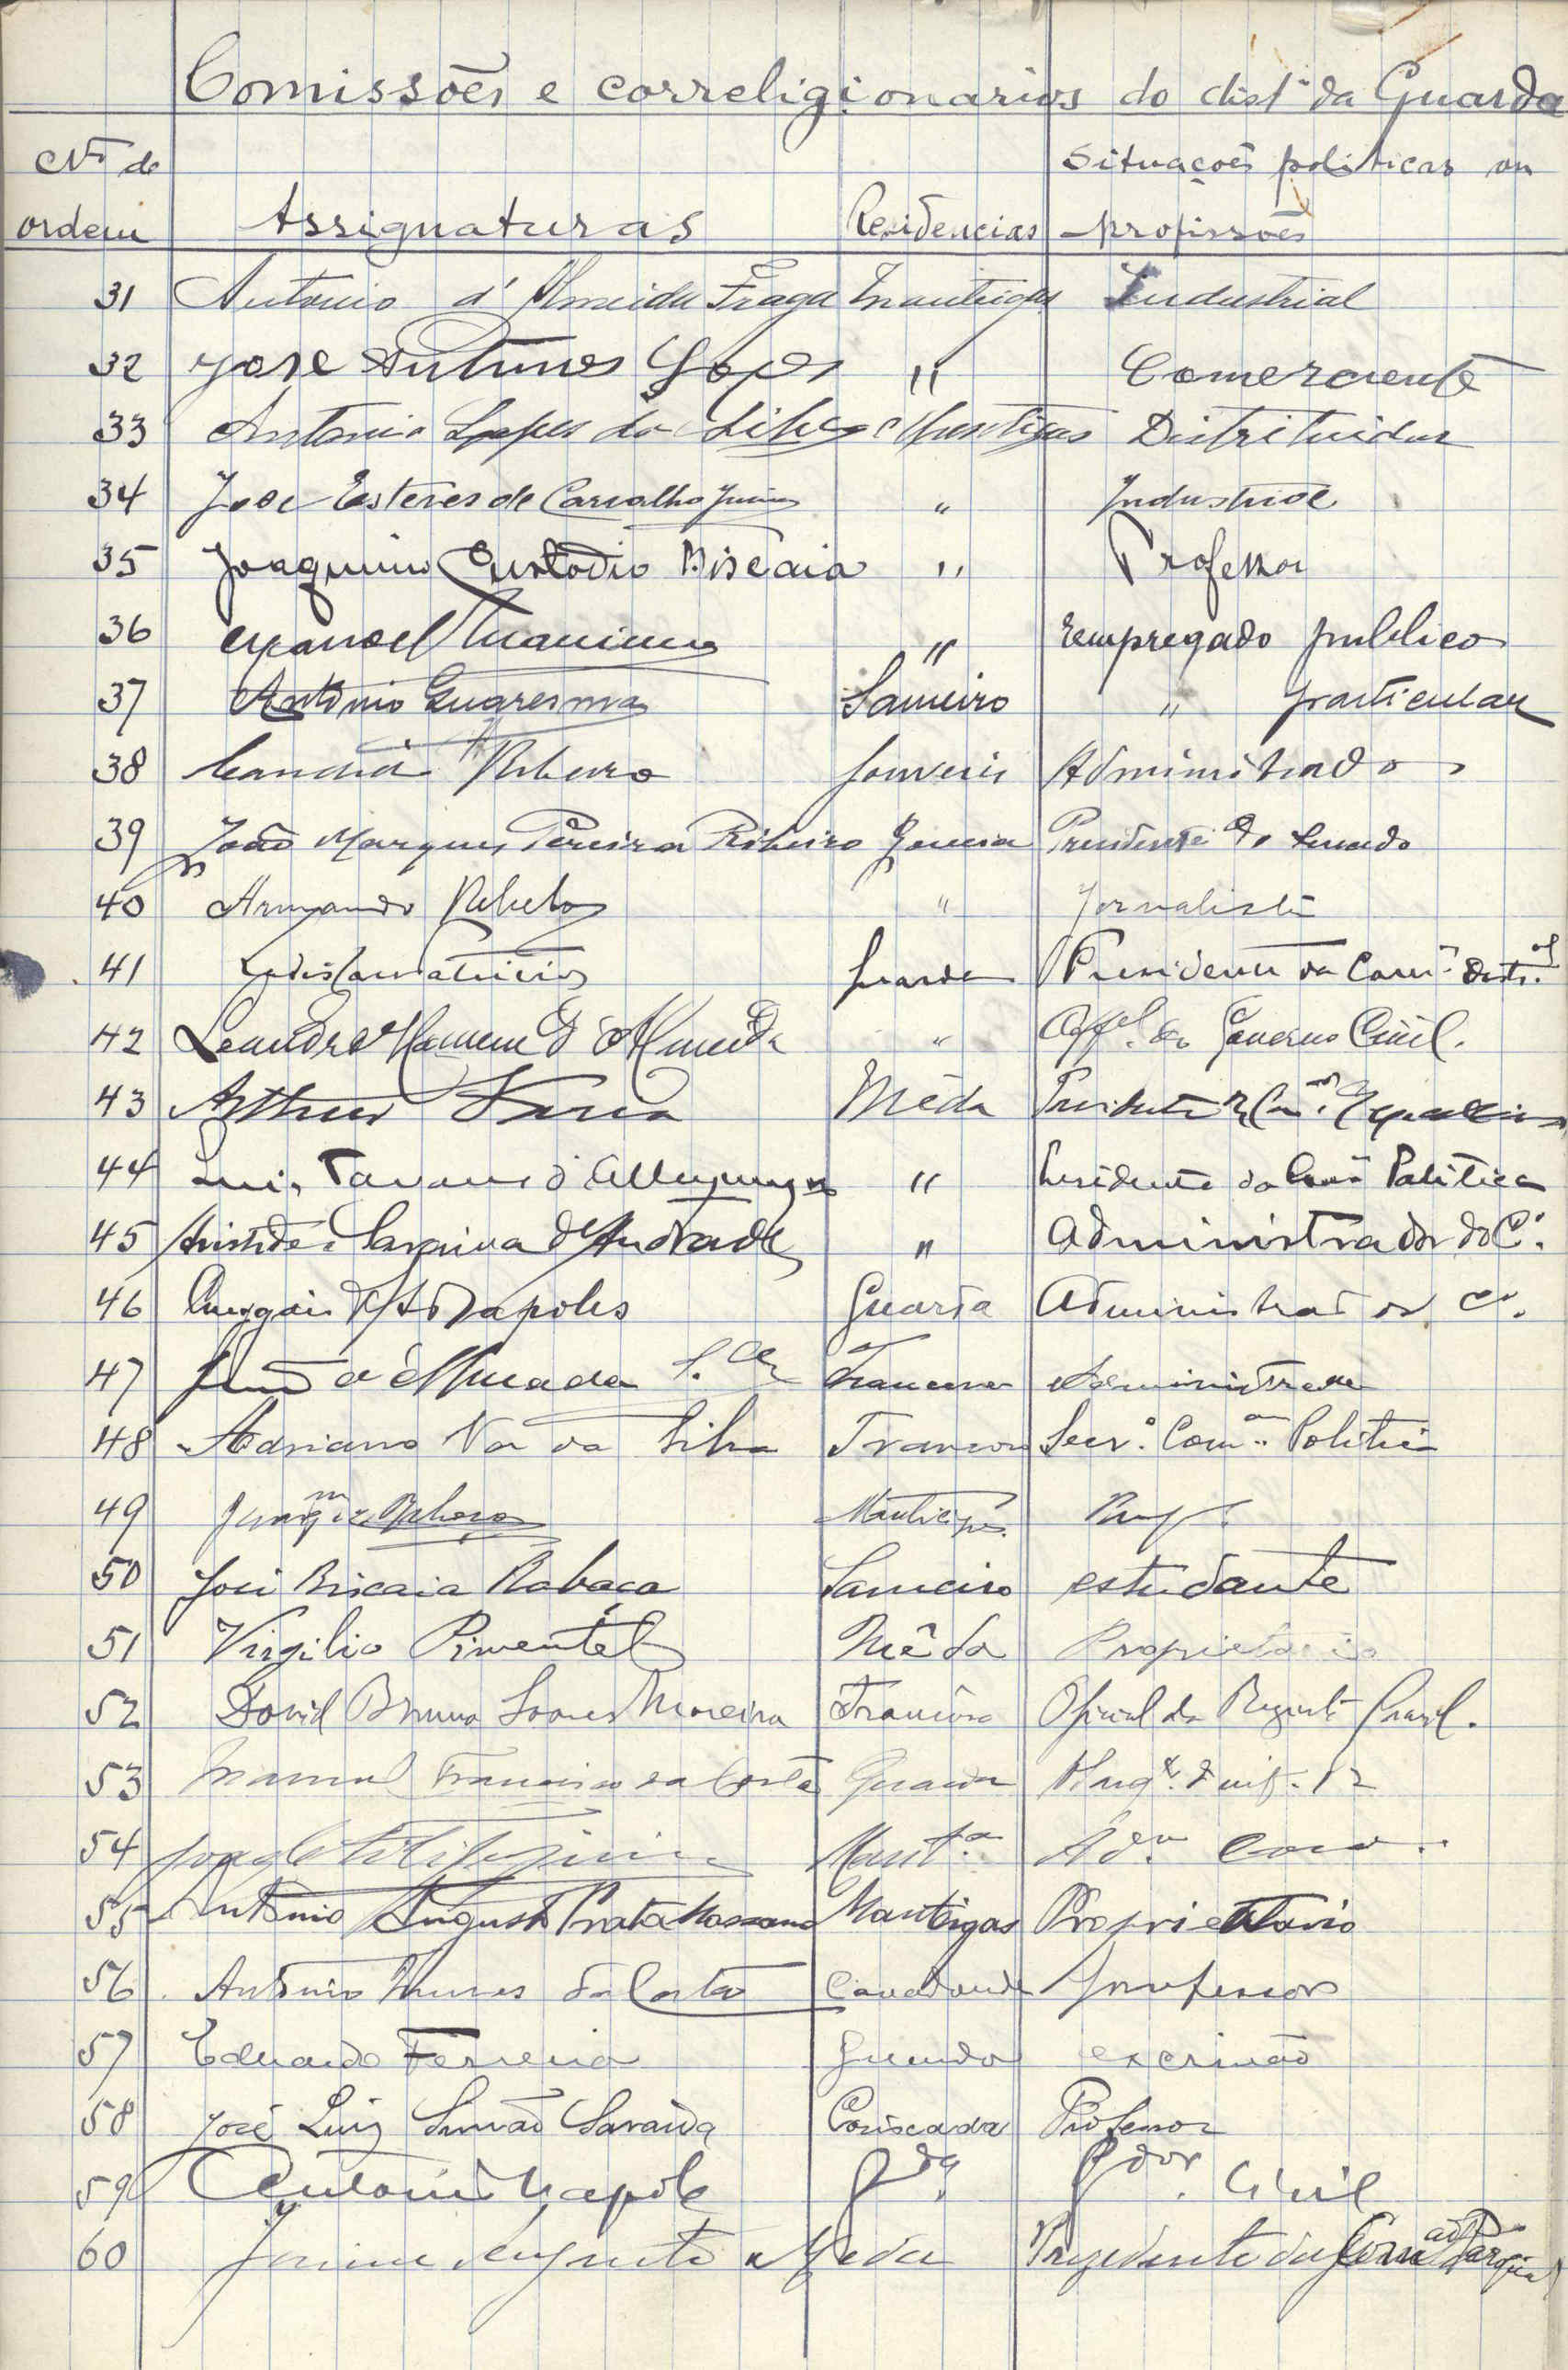 Comissões e correligionarios do dist.º da Guarda
Nº de ordem Assignaturas Residencias Situações politicas ou profissões
31 Antonio d'Almeida Fraga Manteigas Industrial
32 José Antunes Lopes " Comerciente
33 Antonio Lopes da Silva Manteigas Distribuidor
34 José Esteves de Carvalho Junior " Industrial
35 Joaquim Custodio Biscaia " Professor
36 Manoel " Empregado publico
37 Antonio Quaresma Sameiro " particular
38 Candido Ribeiro Gouveia Administrador
39 João Marques Pereira Ribeiro Gouveia Presidente do Senado
40 Armando Rebelo " Jornalista
41 Guarda Presidente da Com.ão Distr.al
42 Leandro Homem d'Almeida " Off.al do Governo Civil.
43 Arthur Mêda Presidente
44 Luis Tavares d' " Presidente da Com.ão Politica
45 Aristides Saraiva d'Andrade " Administrador do C.º
46 Napoles Guarda Administrador C.º
47 d'Almeida Trancoso Administrador
48 Adriano Vaz da Silva Trancoso Secr.º Com.ão Politica
49 Manteigas Prof.
50 José Biscaia Rabaça Sameiro estudante
51 Virgilio Pimentel Mêda Proprietario
52 David Bruno Soares Moreira Trancoso Oficial do Registo Civil.
53 Manuel Francisco da Costa Guarda Sarg.to d'inf. 12
54 Mant.as Ad.or
55 Antonio Augusto Prata Massano Manteigas Proprietario
56 Antonio Nunes da Costa professor
57 Eduardo Ferreira Guarda escrivão
58 José Luiz Simão Saraiva Coriscada Professor
59 Antonio Napoles G.da G.dor Civil
60 Jaime Augusto Meda Prezidente da Com Paroquial